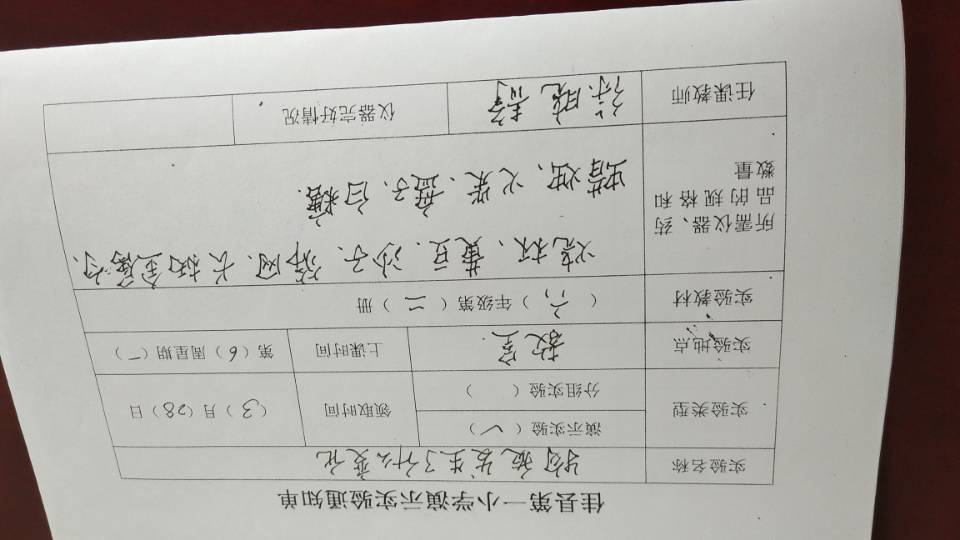 佳县第一小学演示实验通知单
实验名称 物质发生了什么变化
实验类型 演示实验（✓） 领取时间 （3）月（28）日
分组实验（ ）
实验地点 教室 上课时间 第（6）周星期（一）
实验教材 （六）年级第（二）册
所需仪器、药品的规格和数量 烧杯、黄豆、沙子、筛网、长柄金属勺、
蜡烛、火柴、盘子、白糖
任课教师 晓 仪器完好情况